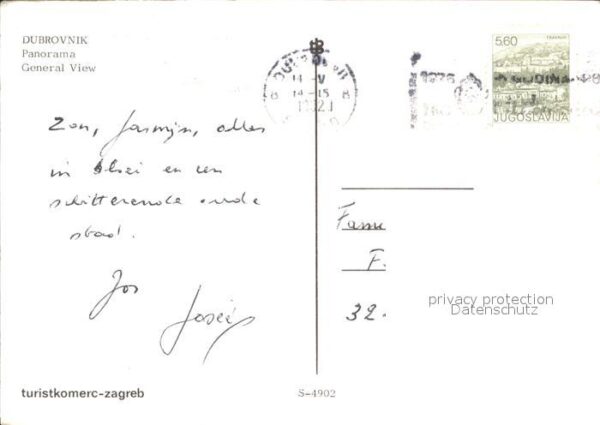 DUBROVNIK
Panorama
General View
14-V
14-15
8 8
5.60
TRAVNIK
JUGOSLAVIJA
1976
GODINA
Zon, Jasmijn, alles
in bloei en een
schitterende oude
stad.
Jos
Fam
F.
32.
privacy protection
Datenschutz
turistkomerc-zagreb
S-4902